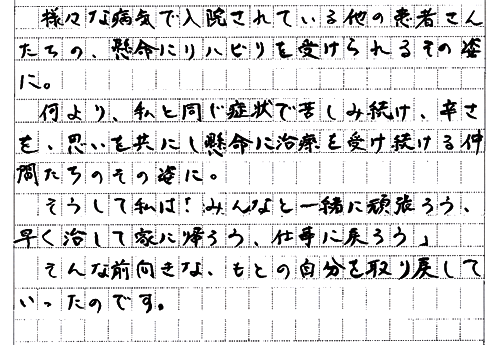 様々な病気で入院されている他の患者さん
たちの、懸命にリハビリを受けられるその姿
に。
何より、私と同じ症状で苦しみ続け、辛さ
を、思いを共にし懸命に治療を受け続ける仲
間たちのその姿に。
そうして私は「みんなと一緒に頑張ろう、
早く治して家に帰ろう、仕事に戻ろう」
そんな前向きな、もとの自分を取り戻して
いったのです。